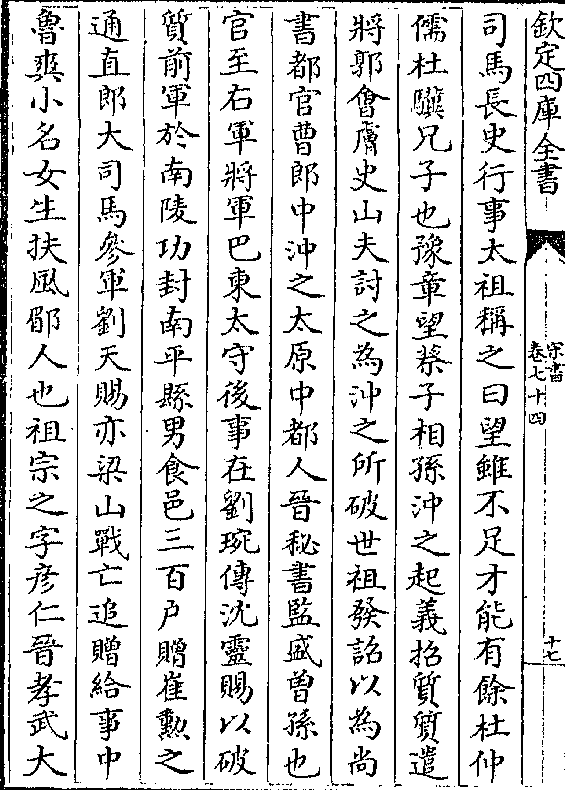 欽定四庫全書
宋書
卷七十四
十七
司馬長史行事太祖稱之曰望雖不足才能有餘杜仲
儒杜驥兄子也豫章望蔡子相孫沖之起義招質質遣
將郭會膚史山夫討之為沖之所破世祖發詔以為尚
書都官曹郎中沖之太原中都人晉秘書監盛曾孫也
官至右軍將軍巴東太守後事在劉琬傳沈靈賜以破
質前軍於南陵功封南平縣男食邑三百户贈崔勳之
通直郎大司馬參軍劉天賜亦梁山戰亡追贈給事中
魯爽小名女生扶風郿人也祖宗之字彦仁晉孝武大